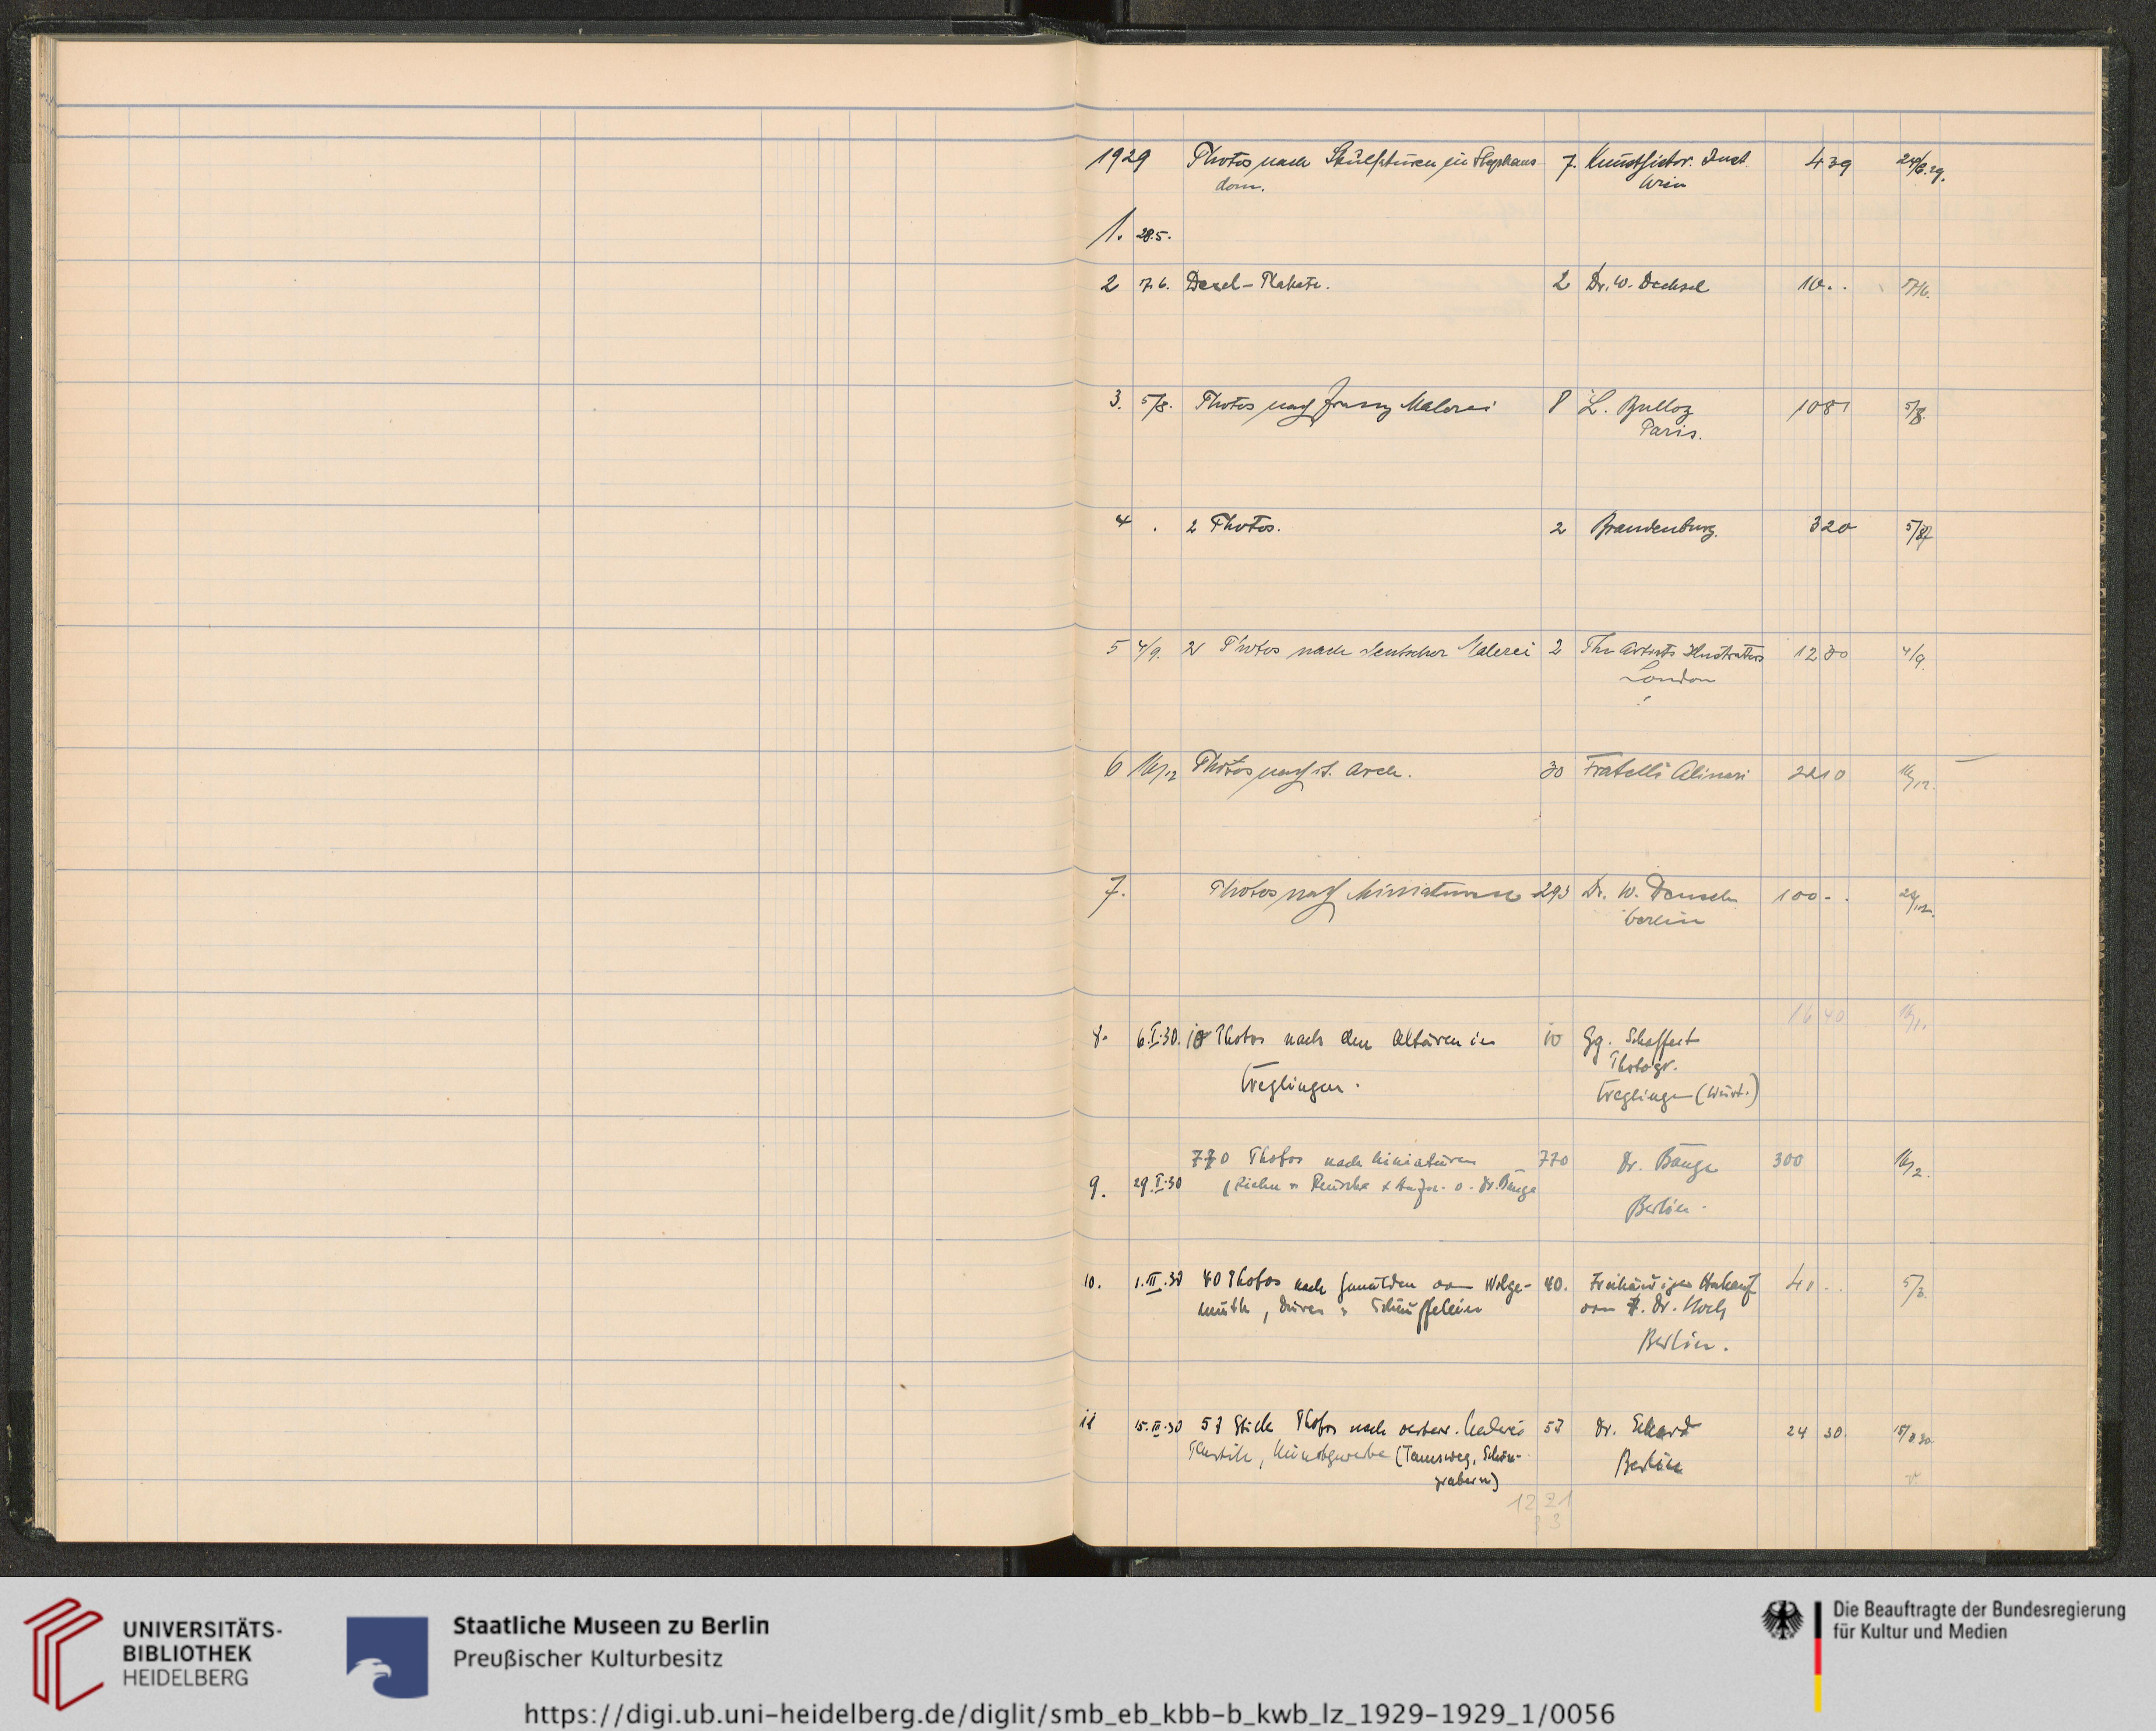 1929 Photos nach Skulpturen im Stephans- 7. Kunsthistor. Inst. 4 39 29.
dom. Wien
1. 28.5.
2 7.6. Dexel-Plakate. 2 Dr. W. Dechsel 10..
3. 5/8. Photos nach franz Malerei 8 L. Bulloz 1081 5/8.
Paris.
4 . 2 Photos. 2 Brandenburg. 320 5/8
5 4/9. 2 Photos nach deutscher Malerei 2 The Artists Illustrators 12 80 4/9.
London
6 16/12 Photos nach it. Arch. 30 Fratelli Alinari 2210 16/12.
7. Photos nach Miniaturen 293 Dr. W. 100 - .
Berlin
16 40
8. 6.I.30. 10 Photos nach den Altären in 10 Gg. Schaffert
Photogr.
Creglingen. Creglingen (Württ.)
770 Photos nach Miniaturen 770 Dr. Bange 300 16/2.
9. 29.I.30 Dr. Bange
Berlin.
10. 1.III.30 40 Photos nach Gemälden von Wolge- 40. Freihändiger Ankauf 40 . . 5/3.
muth, Dürer u Schäuffelein von Dr. Koch
Berlin.
11 15.III.30 57 Stück Photos nach oesterr. Malerei 57 Dr. Eckard 24 30. 15/3 30
Plastik, Kunstgewerbe (Tamsweg, Schön- Berlin
grabern)
12 21
33
UNIVERSITÄTS-
BIBLIOTHEK
HEIDELBERG
Staatliche Museen zu Berlin
Preußischer Kulturbesitz
Die Beauftragte der Bundesregierung
für Kultur und Medien
https://digi.ub.uni-heidelberg.de/diglit/smb_eb_kbb-b_kwb_lz_1929-1929_1/0056